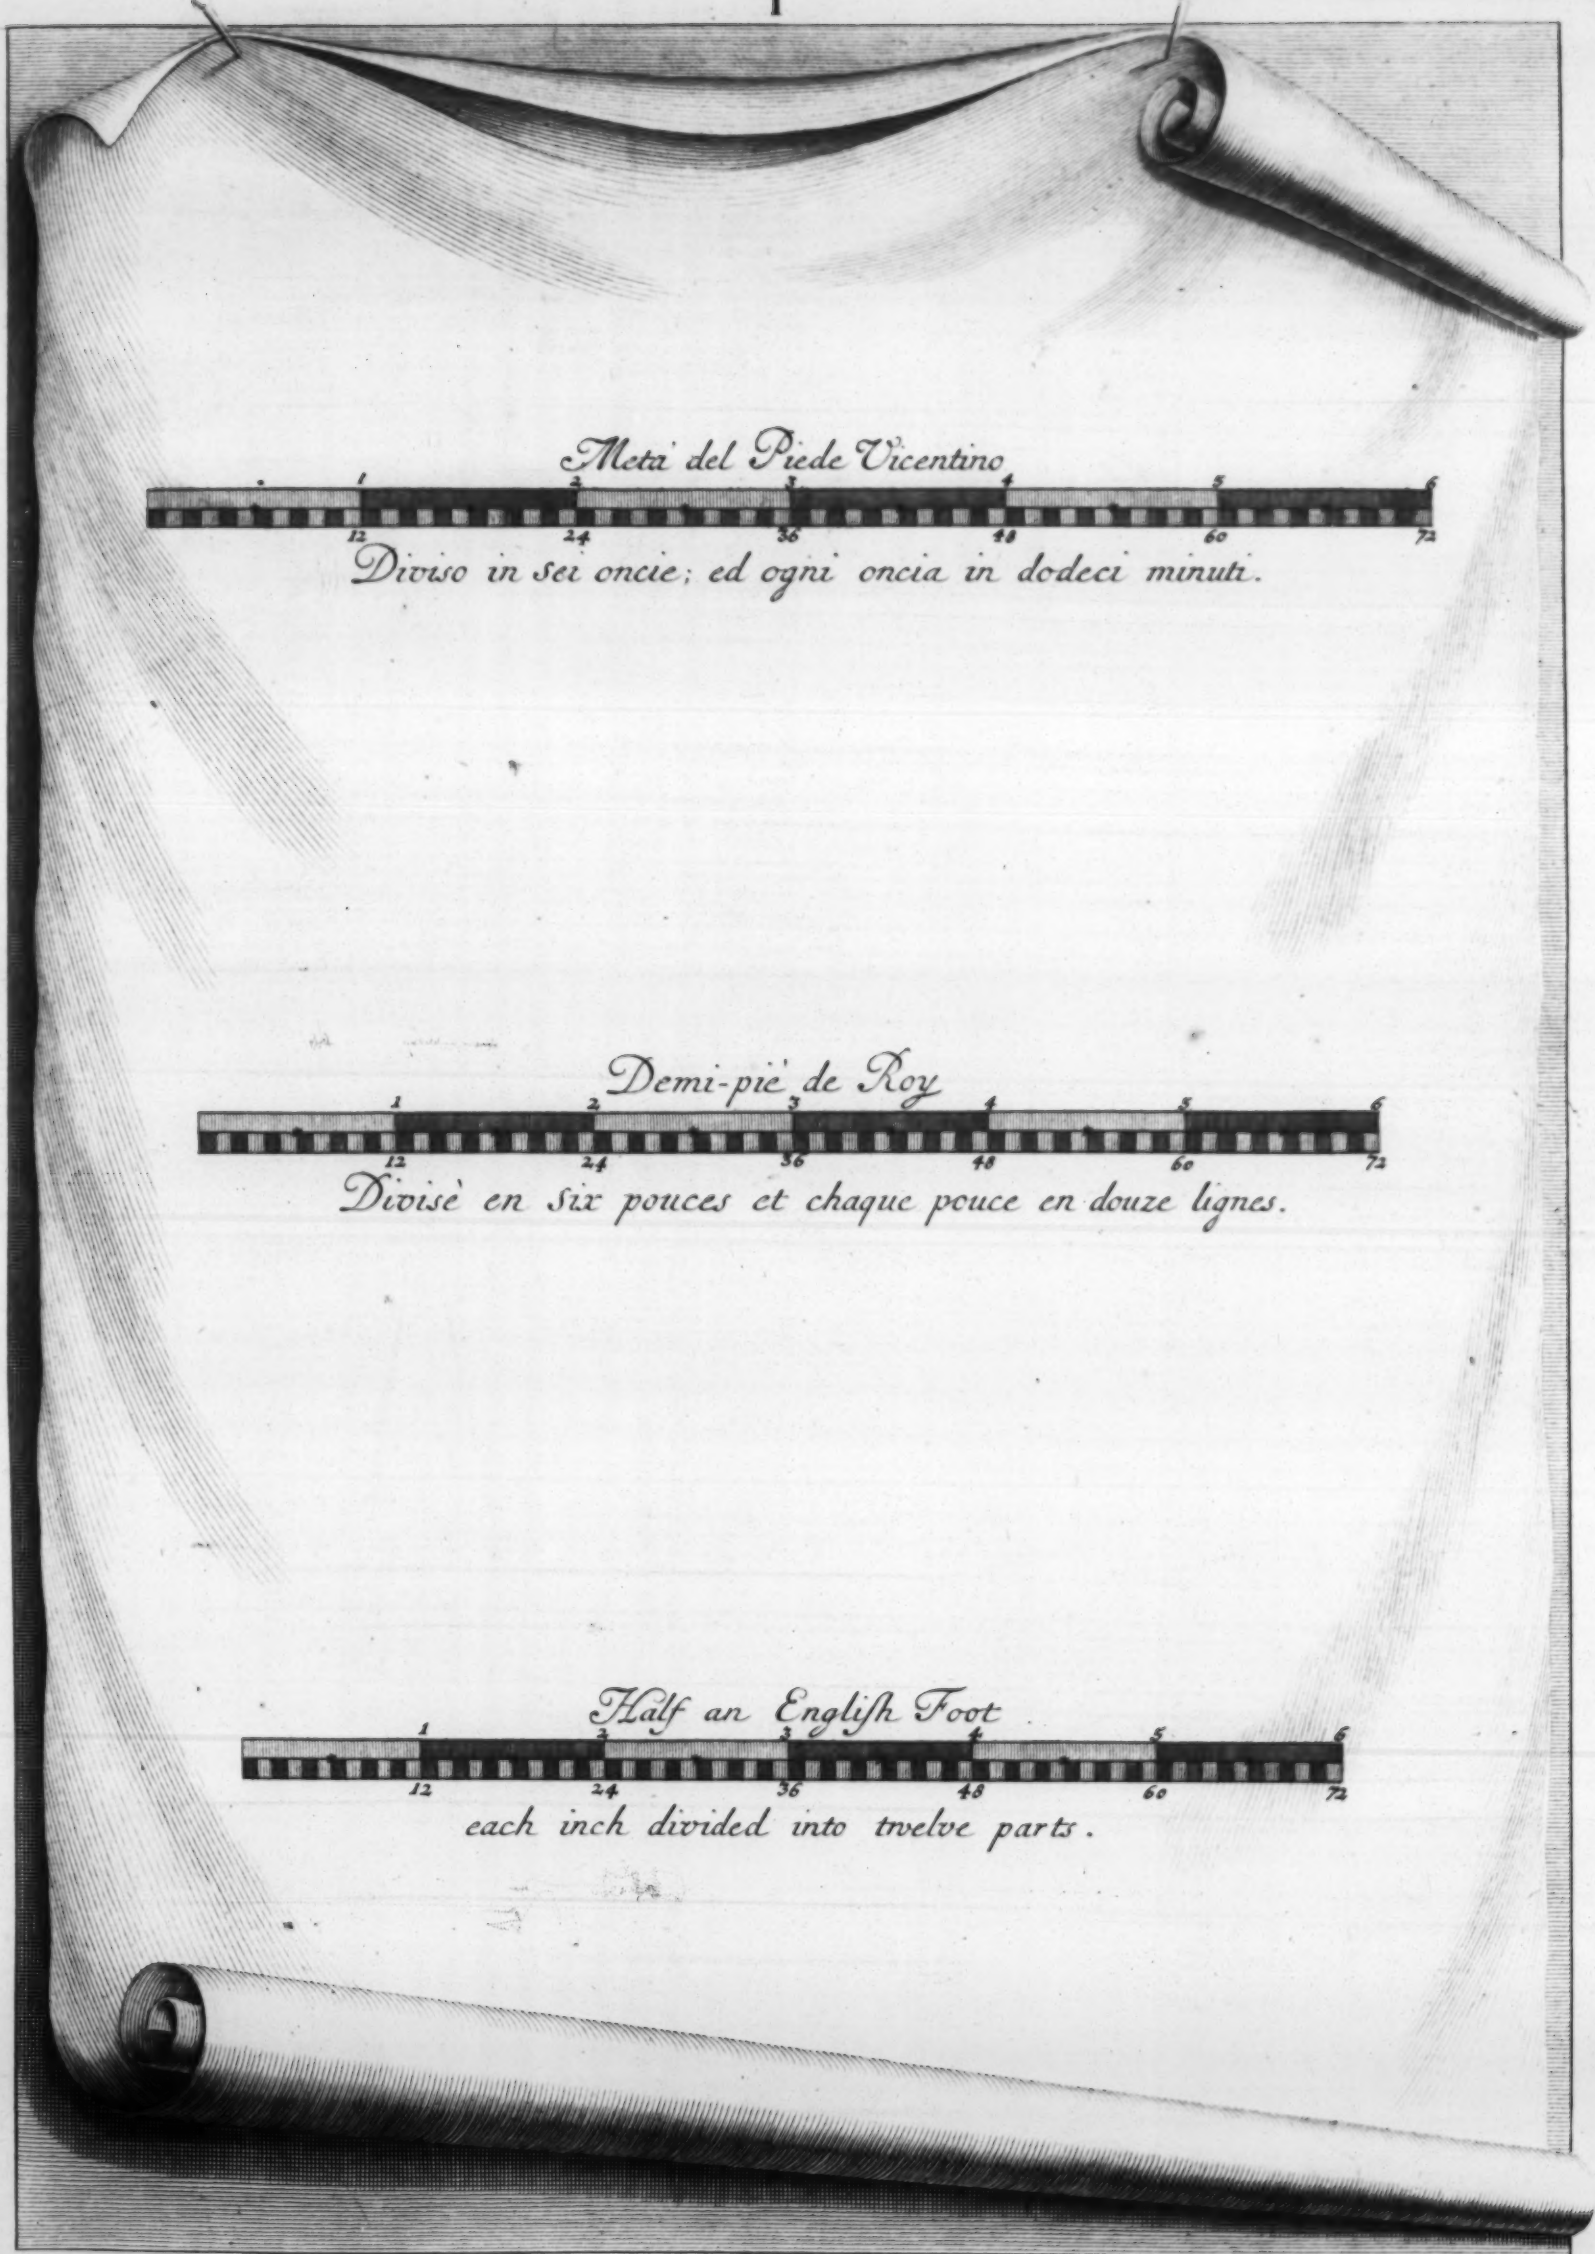 I
Metà del Piede Vicentino
1 2 3 4 5 6
12 24 36 48 60 72
Diviso in sei oncie; ed ogni oncia in dodeci minuti.
Demi-piè de Roy
1 2 3 4 5 6
12 24 36 48 60 72
Divisè en six pouces et chaque pouce en douze lignes.
Half an Engliſh Foot
1 2 3 4 5 6
12 24 36 48 60 72
each inch divided into twelve parts.